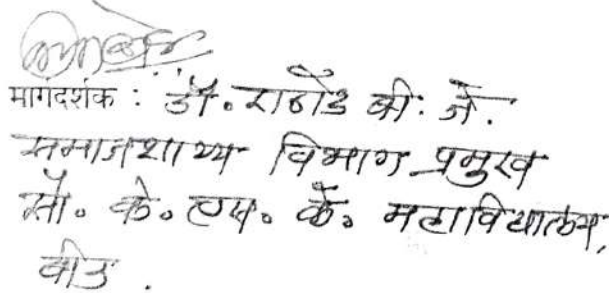 मार्गदर्शक : डॉ. राठोड बी. जे.
समाजशास्त्र विभाग प्रमुख
सौ. के. एस. के. महाविद्यालय,
बीड .